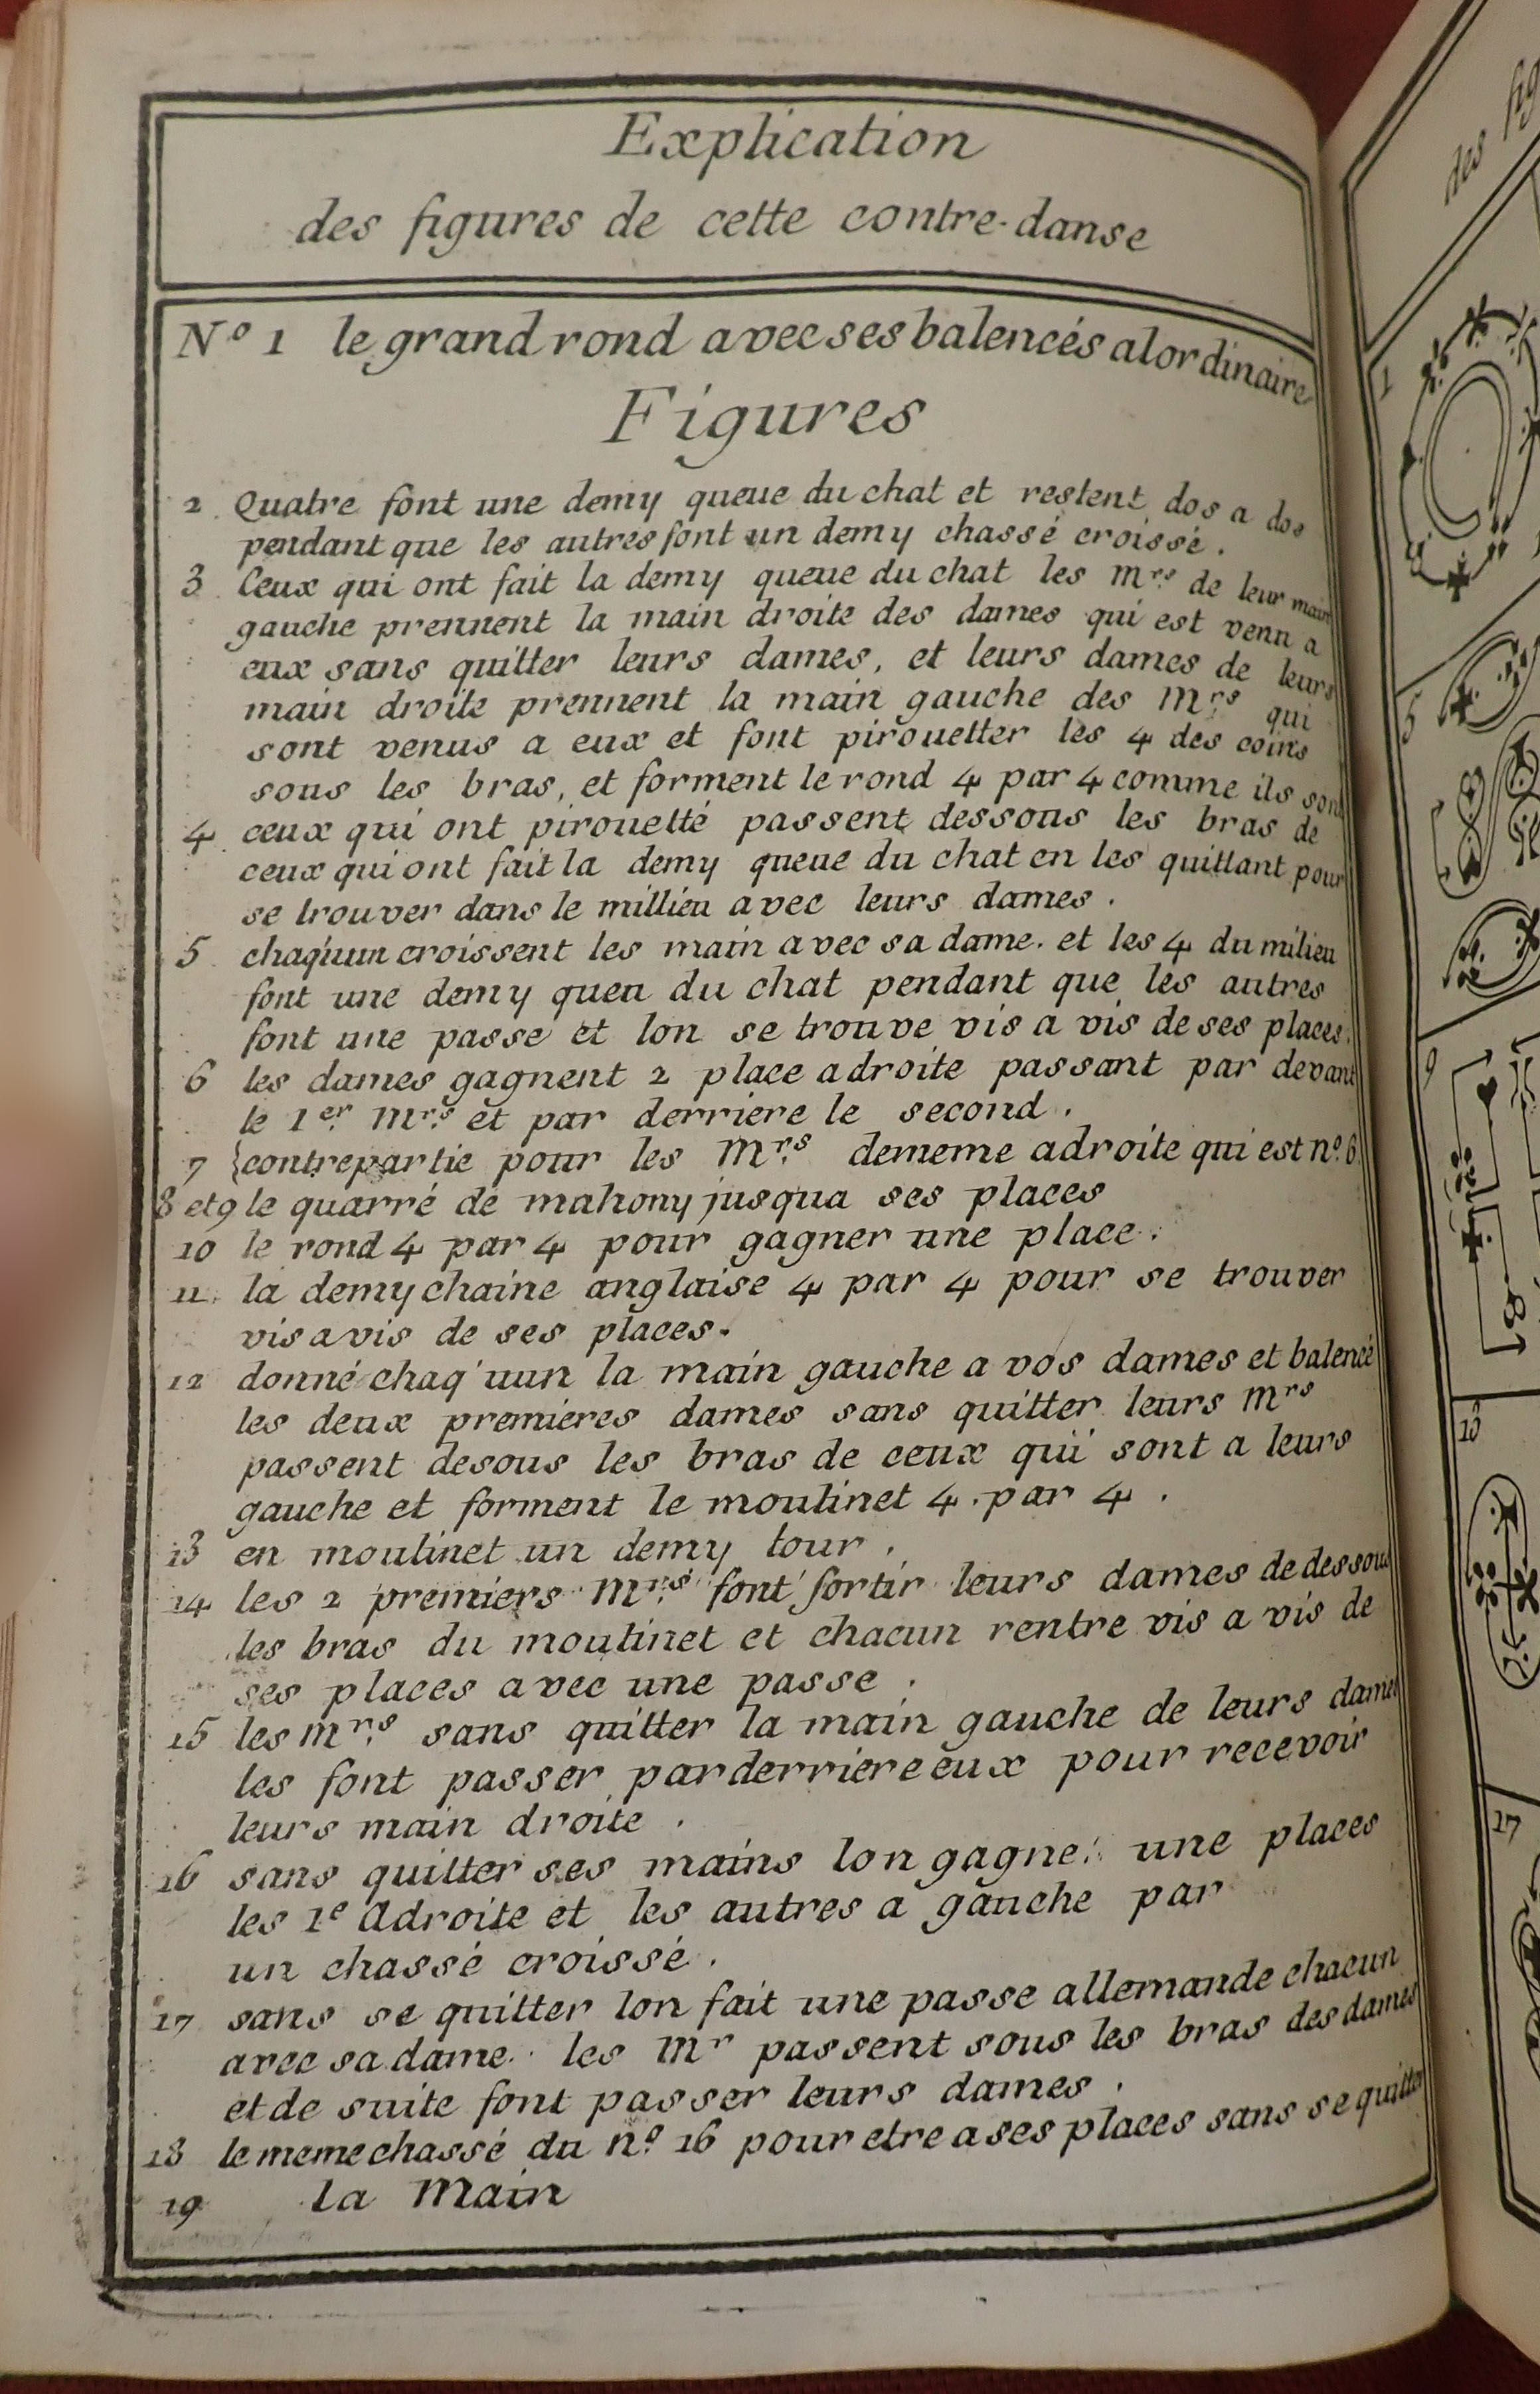 Explication
des figures de cette contre-danse
N.º 1 le grand rond avec ses balencés a lordinaire
Figures
2 Quatre font une demy queue du chat et restent dos a dos
pendant que les autres font un demy chassé croissé.
3 Ceux qui ont fait la demy queue du chat les mrs de leur main
gauche prennent la main droite des dames qui est venu a
eux sans quitter leurs dames, et leurs dames de leurs
main droite prennent la main gauche des Mrs qui
sont venus a eux et font pirouetter les 4 des coins
sous les bras, et forment le rond 4 par 4 comme ils sont
4 ceux qui ont pirouetté passent dessous les bras de
ceux qui ont fait la demy queue du chat en les quittant pour
se trouver dans le millieu avec leurs dames.
5 chaq'uun croissent les main avec sa dame. et les 4 du milieu
font une demy queu du chat pendant que les autres
font une passe et lon se trouve vis a vis de ses places.
6 les dames gagnent 2 place adroite passant par devant
le 1er. Mrs et par derriere le second.
7 {contrepartie pour les Mrs dememe adroite qui est nº. 6
8 et 9 le quarré de mahony jusqua ses places
10 le rond 4 par 4 pour gagner une place.
11. la demy chaine anglaise 4 par 4 pour se trouver
vis a vis de ses places.
12 donné chaq'uun la main gauche a vos dames et balencé
les deux premieres dames sans quitter leurs Mrs
passent desous les bras de ceux qui sont a leurs
gauche et forment le moulinet 4. par 4.
13 en moulinet un demy tour.
14 les 2 premiers Mrs font sortir leurs dames de dessous
les bras du moulinet et chacun rentre vis a vis de
ses places avec une passe.
15 les Mrs sans quitter la main gauche de leurs dames
les font passer par derriere eux pour recevoir
leurs main droite.
16 sans quitter ses mains lon gagne: une places
les 1e adroite et les autres a gauche par
un chassé croissé.
17 sans se quitter lon fait une passe allemande chacun
avec sa dame. les Mr passent sous les bras des dames
et de suite font passer leurs dames.
18 le meme chassé du nº 16 pour etre a ses places sans se quitter
19 La Main
des fig
1
5
9
10
17